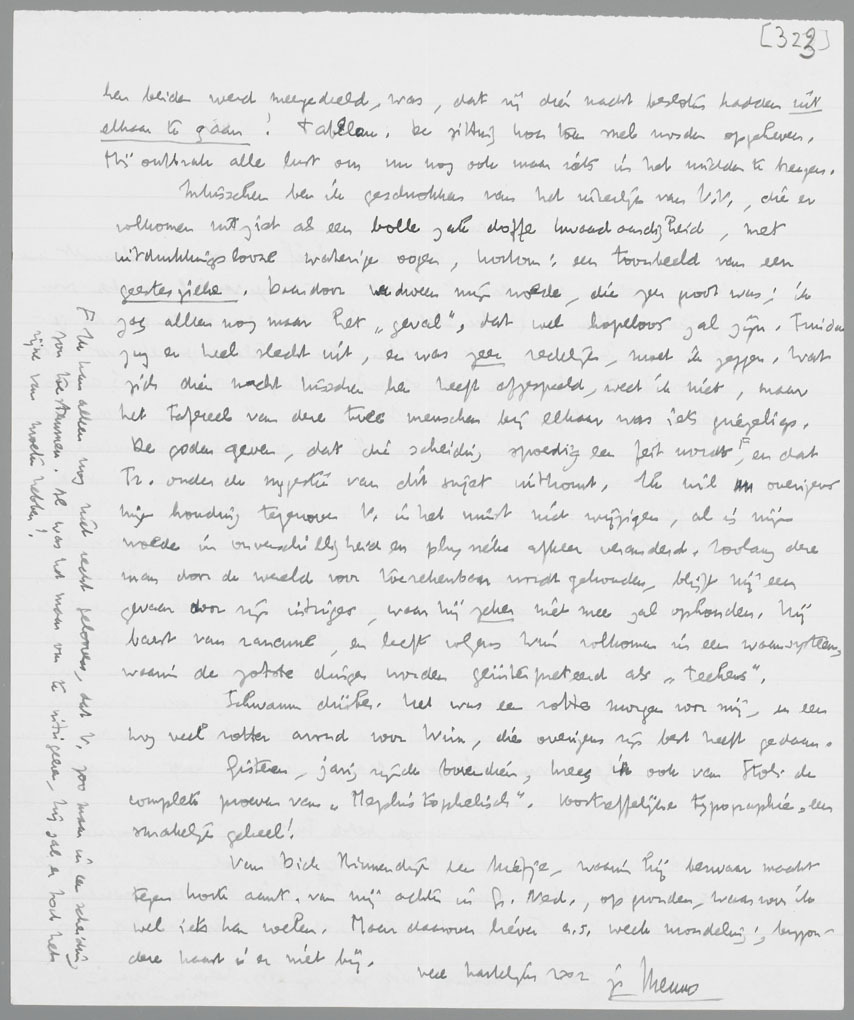 [323]
hen beiden werd meegedeeld, was, dat zij dien nacht besloten hadden uit
elkaar te gaan! Tableau. De zitting kon toen snel worden opgeheven.
Mij ontbrak alle lust om nu nog ook maar iets in het midden te brengen.
Intusschen ben ik geschrokken van het uiterlijk van V.V., die er
volkomen uitziet als een bolle zak doffe kwaadaardigheid, met
uitdrukkingslooze waterige oogen, kortom: een toonbeeld van een
geesteszieke. Daardoor verdween mijn woede, die zeer groot was; ik
zag alleen nog maar het „geval", dat wel hopeloos zal zijn. Truida
zag er heel slecht uit, en was zeer redelijk, moet ik zeggen. Wat
zich dien nacht tusschen hen heeft afgespeeld, weet ik niet, maar
het tafereel van deze twee menschen bij elkaar was iets griezeligs.
De goden geven, dat die scheiding spoedig een feit wordt F, en dat
Tr. onder de suggestie van dit sujet uitkomt. Ik wil overigens
mijn houding tegenover V. in het minst niet wijzigen, al is mijn
woede in onverschilligheid en physieke afkeer veranderd. Zoolang deze
man door de wereld voor toerekenbaar wordt gehouden, blijft hij een
gevaar door zijn intriges, waar hij zeker niet mee zal ophouden. Hij
barst van rancune, en leeft volgens Wim volkomen in een waansysteem,
waarin de zotste dingen worden geïnterpreteerd als „teekens".
Schwamm drüber. Het was een rotte morgen voor mij, en een
nog veel rotter avond voor Wim, die overigens zijn best heeft gedaan.
Gisteren, jarig zijnde bovendien, kreeg ik ook van Stols de
complete proeven van „Mephistophelisch". Voortreffelijke typographie, een
smakelijk geheel!
Van Dick Binnendijk een briefje, waarin hij bezwaar maakt
tegen korte aant. van mij achter in Gr. Ned., op gronden, waarvoor ik
wel iets kan voelen. Maar daarover liever a.s. week mondeling; bijzon-
dere haast is er niet bij.
veel hartelijks voor
je Menno
F Ik kan alleen nog niet recht gelooven, dat V. zoo maar in een scheiding
zou toestemmen. Al was het maar om te intrigeeren, hij zal er toch het
zijne van moeten hebben!